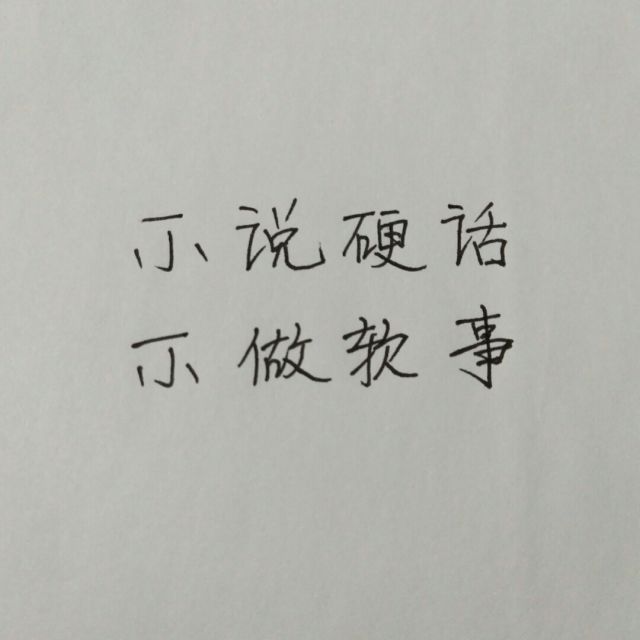 不说硬话
不做软事